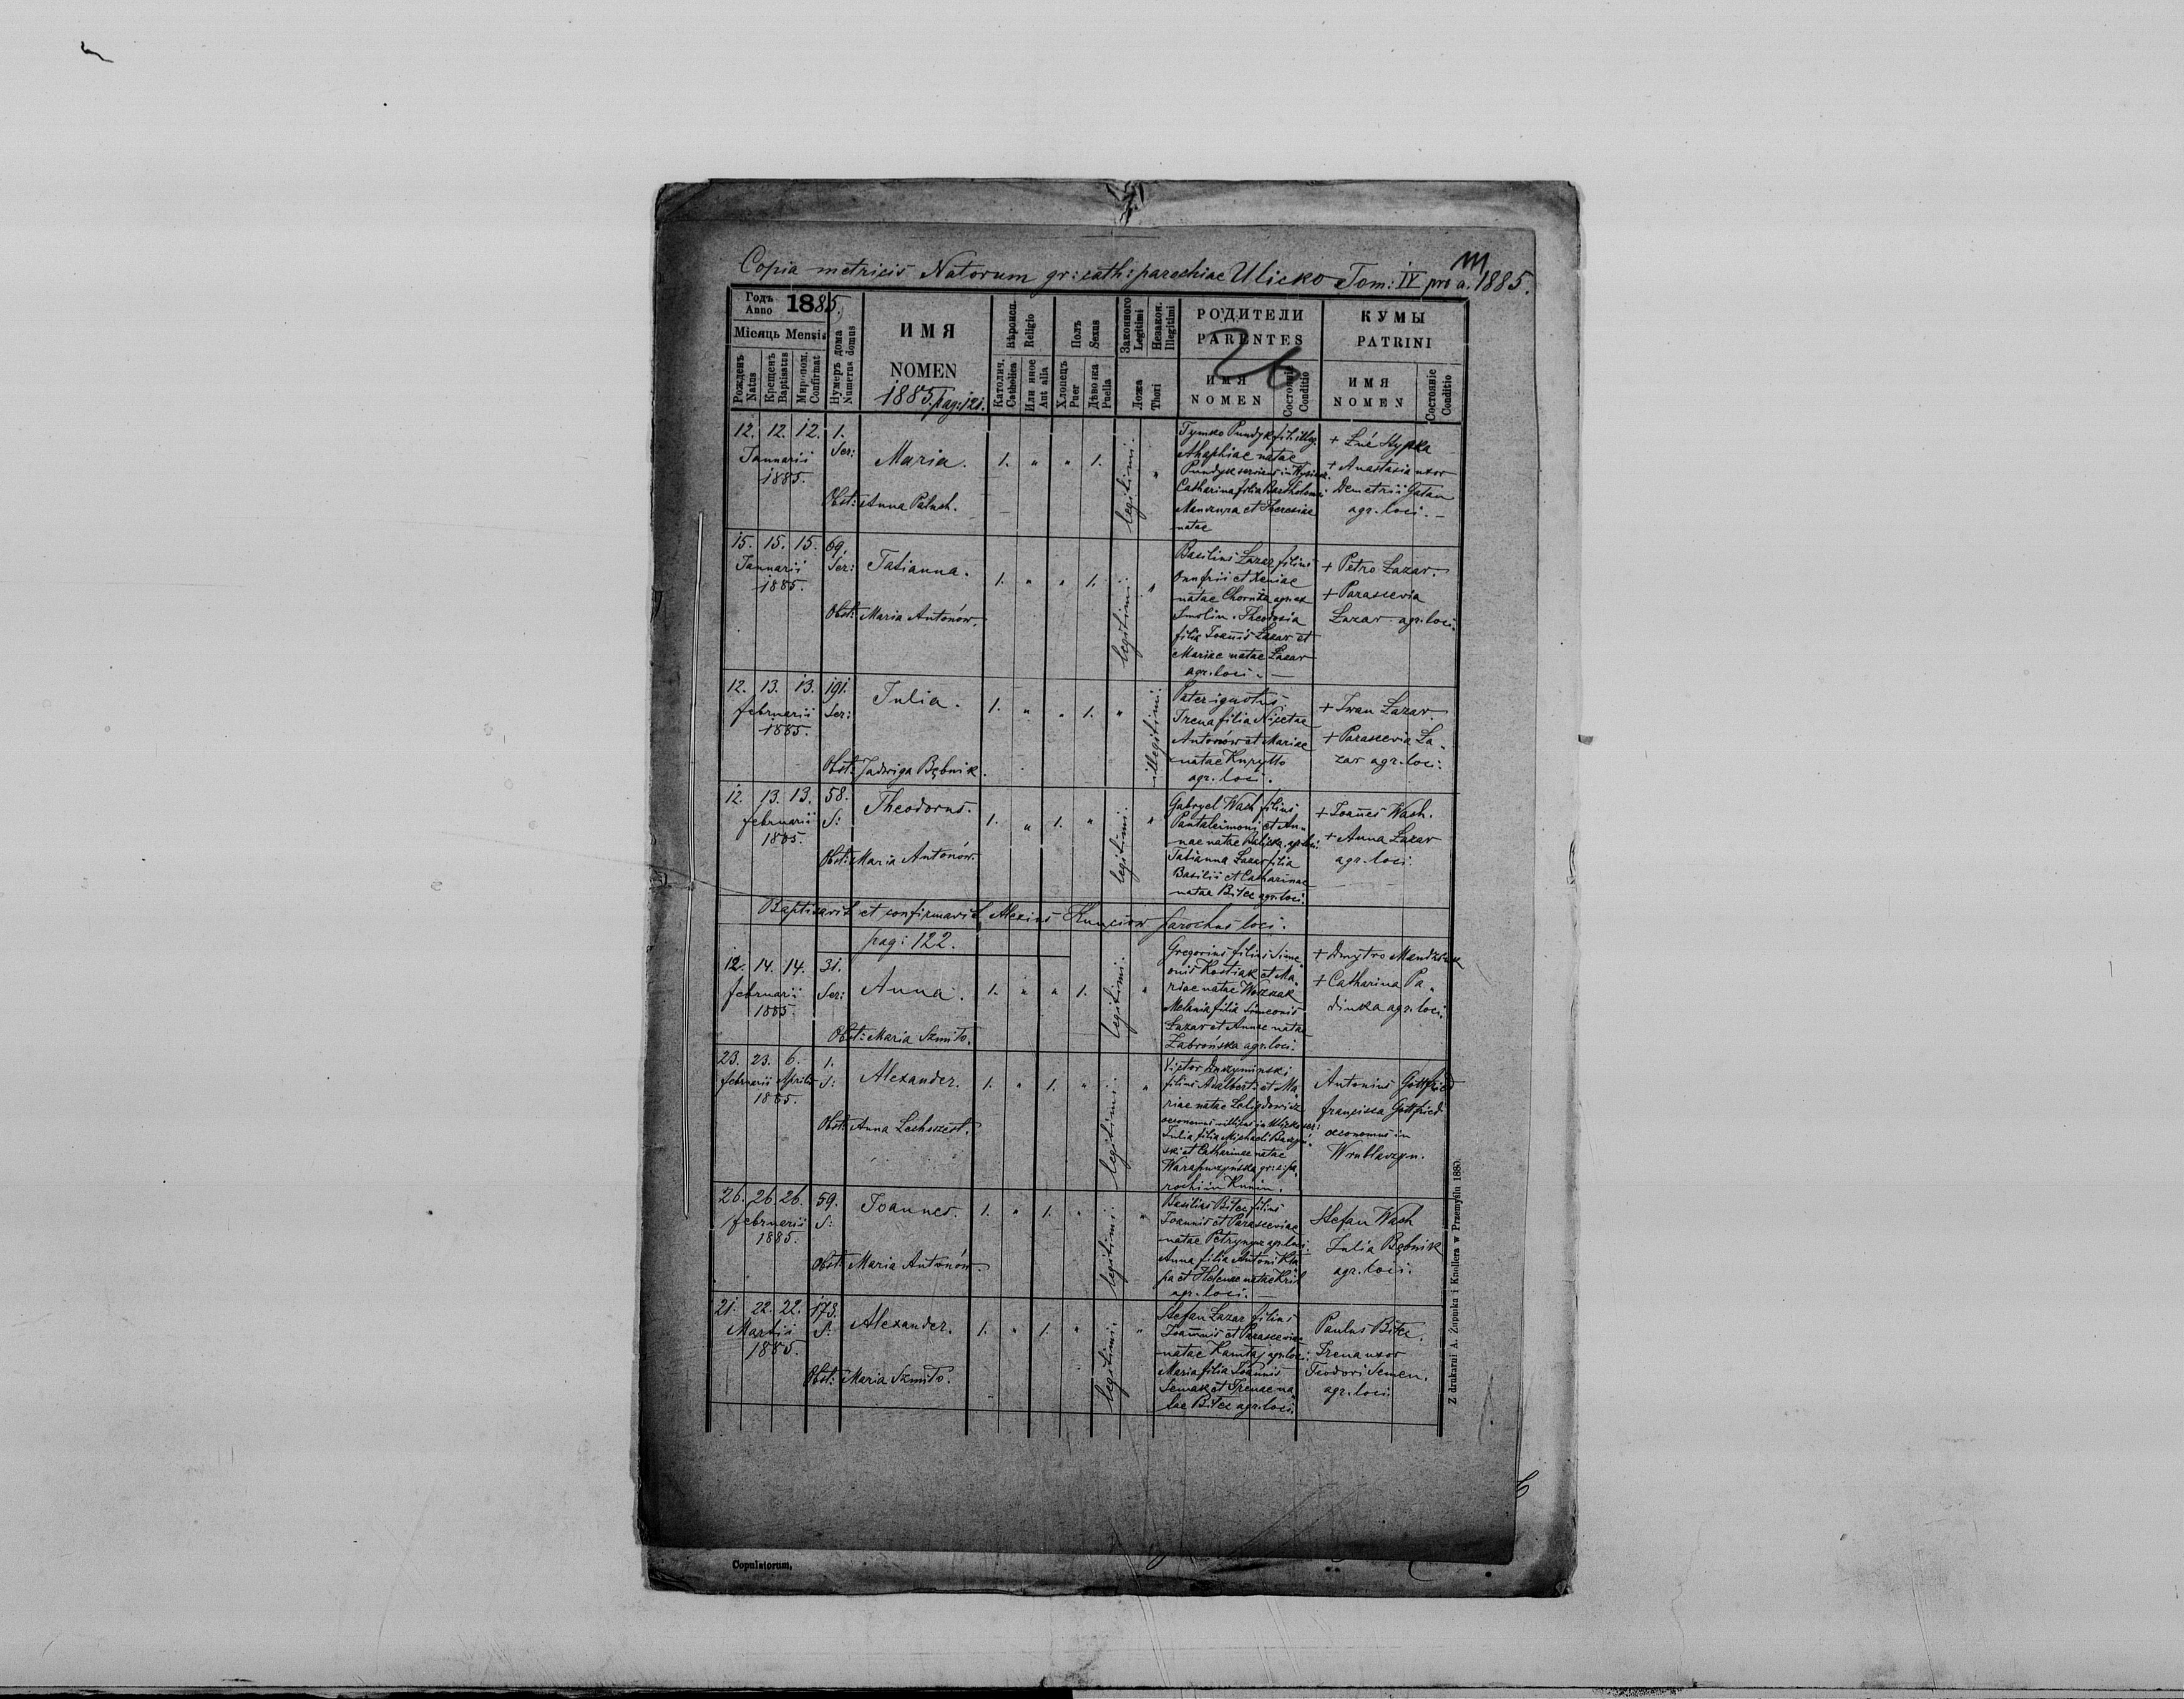 Copia metricis Natorum gr: cath: parochiae Ulicko Tom: IV pro a. 1885.
Годъ Anno 1885.
Місяць Mensis
Рожденъ Natus
Крещенъ Baptisatus
Миропом. Confirmat
Нумеръ дома Numerus domus
ИМЯ
NOMEN
1885. pag: 121.
Вѣроисп. Religio
Католич. Catholica
Или иное Aut alia
Полъ Sexus
Хлопецъ Puer
Дѣвонка Puella
Законного Legitimi
Незакон. Illegitimi
Ложа Thori
РОДИТЕЛИ
PARENTES
26
ИМЯ
NOMEN
Состояніе Conditio
КУМЫ
PATRINI
ИМЯ
NOMEN
Состояніе Conditio
12. 12. 12. 1.
Januarii Ser:
1885.
Maria. 1. " " 1. legitimi. "
Obst: Anna Paluch.
Tymko Pundyk fil. illeg.
Ahaphiae natae
Pundyk
Catharina filia Bartholomei
et Theresiae
natae
+ Luć Hypka
+ Anastasia uxor
Demetrii Gatan
agr. loci. -
15. 15. 15. 69.
Januarii Ser:
1885.
Tatianna. 1. " " 1. legitimi. "
Obst: Maria Antonów.
Basilius Łazar filius
Onufrii et Xeniae
natae agr. ex
Smolin. Theodosia
filia Joannis Łazar et
Mariae natae Łazar
agr. loci. -
+ Petro Łazar.
+ Parascevia
Łazar agr. loci.
12. 13. 13. 191.
februarii Ser:
1885.
Julia. 1. " " 1. " illegitimi.
Obst: Jadwiga Bębnik.
Pater ignotus,
Irena filia Nicetae
Antonów et Mariae
natae Kuryłło
agr. loci.
+ Iwan Łazar.
+ Parascevia Ła-
zar agr. loci.
12. 13. 13. 58.
februarii S:
1885.
Theodorus. 1. " 1. " legitimi. "
Obst: Maria Antonów.
Gabryel Wach filius
Pantaleimoni et An-
nae natae agr. loci.
Tatianna Łazar filia
Basilii et Catharinae
natae Bilcz agr. loci.
+ Joannes Wach.
+ Anna Łazar
agr. loci.
Baptisavit et confirmavit Alexius Kunciów parochus loci.
pag: 122.
12. 14. 14. 31.
februarii Ser:
1885.
Anna. 1. " " 1. legitimi. "
Obst: Maria Szmiło.
Gregorius filius Sime-
onis Kostiak et Ma-
riae natae
Melania filia Simeonis
Łazar et Annae natae
Zabrońska agr. loci.
+ Dmytro
+ Catharina Pa-
dinka agr. loci.
23. 23. 6. 1.
februarii Aprilis S:
1885.
Alexander. 1. " 1. " legitimi. "
Obst: Anna
Victor
filius Adalberti et Ma-
riae natae
oeconomus
Julia filia Michaeli
ski et Catharinae natae
gr: c: pa-
rochi in
Antonius Gottfried
francisca Gottfried
oeconomus in
26. 26. 26. 59.
februarii S:
1885.
Joannes. 1. " 1. " legitimi. "
Obst: Maria Antonów.
Basilius Bilcz filius
Joannis et Parasceviae
natae agr. loci.
Anna filia Antoni
pa et Helenae natae Kril
agr. loci. -
Stefan Wach
Julia Bębnik
agr. loci.
21. 22. 22. 173.
Martii S:
1885.
Alexander. 1. " 1. " legitimi. "
Obst: Maria Szmiło.
Stefan Łazar filius
Joannis et Parasceviae
natae agr. loci:
Maria filia Joannis
Semak et Irenae na-
tae Bilcz agr. loci.
Paulus Bilcz.
Irena uxor
Teodori Semen.
agr. loci.
Z drukarni A. Żupnika i Knollera w Przemyślu 1880.
Copulatorum,